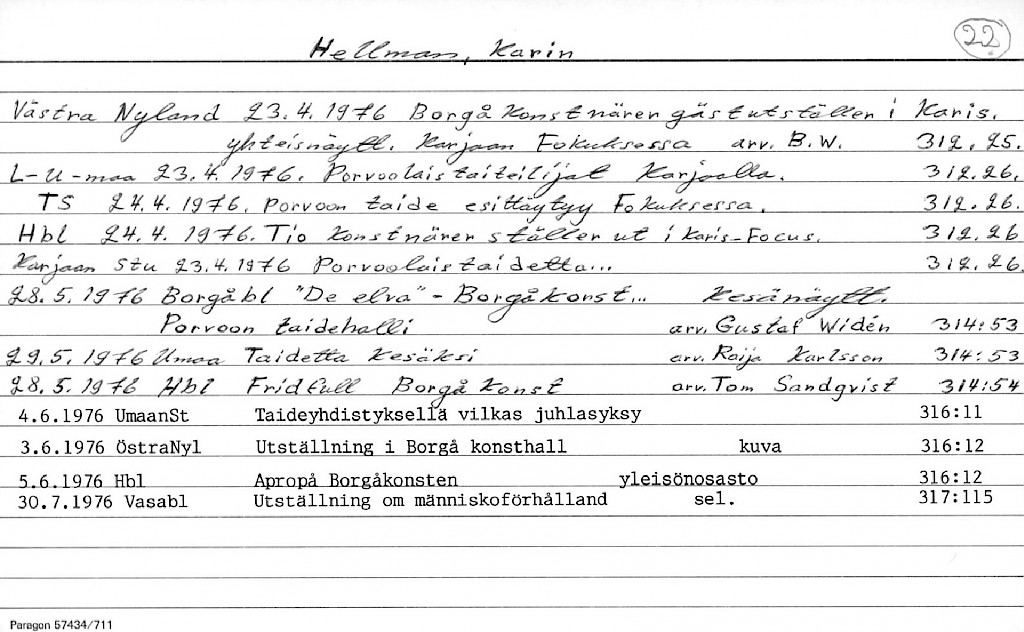 22
Hellman, Karin
Västra Nyland 23.4.1976 Borgå Konstnärer gästutställer i Karis.
yhteisnäytt. Karjaan Fokuksessa arv. B.W. 312.25.
L-U-maa 23.4.1976. Porvoolaistaiteilijat Karjaalla. 312.26.
TS 24.4.1976. Porvoon taide esittäytyy Fokuksessa. 312.26.
Hbl 24.4.1976. Tio konstnärer ställer ut i Karis-Focus. 312.26
Karjaan Stu 23.4.1976 Porvoolaistaidetta... 312.26.
28.5.1976 Borgåbl "De elva" - Borgåkonst... Kesänäytt.
Porvoon taidehalli arv. Gustaf Widén 314:53
29.5.1976 Umaa Taidetta kesäksi arv. Raija Karlsson 314:53
28.5.1976 Hbl Fridfull Borgåkonst arv. Tom Sandqvist 314:54
4.6.1976 UmaanSt Taideyhdistyksellä vilkas juhlasyksy 316:11
3.6.1976 ÖstraNyl Utställning i Borgå konsthall kuva 316:12
5.6.1976 Hbl Apropå Borgåkonsten yleisönosasto 316:12
30.7.1976 Vasabl Utställning om människoförhålland sel. 317:115
Paragon 57434/711